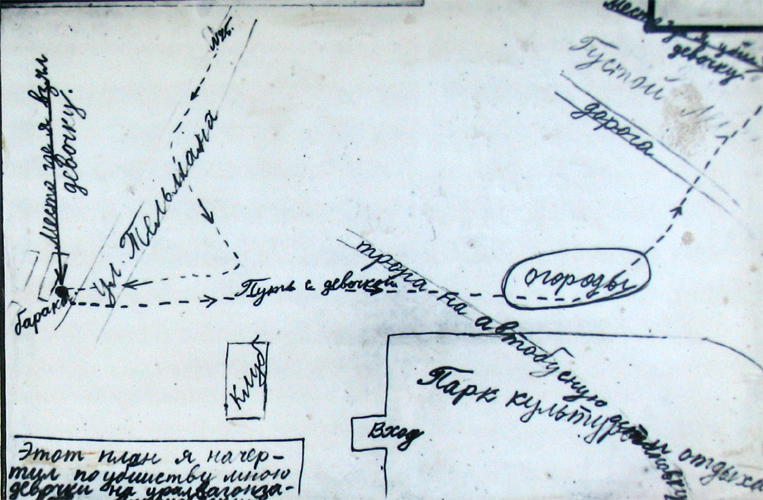 место где я убил
девочку
Густой лес
дорога
Место где я взял
девочку.
ул. Тельмана
бараки
Путь с девочкой
огороды
тропа на автобусную
Клуб
Парк культуры и отдыха
Вход
Этот план я начер-
тил по убийству мною
девочки на уралвагонза-